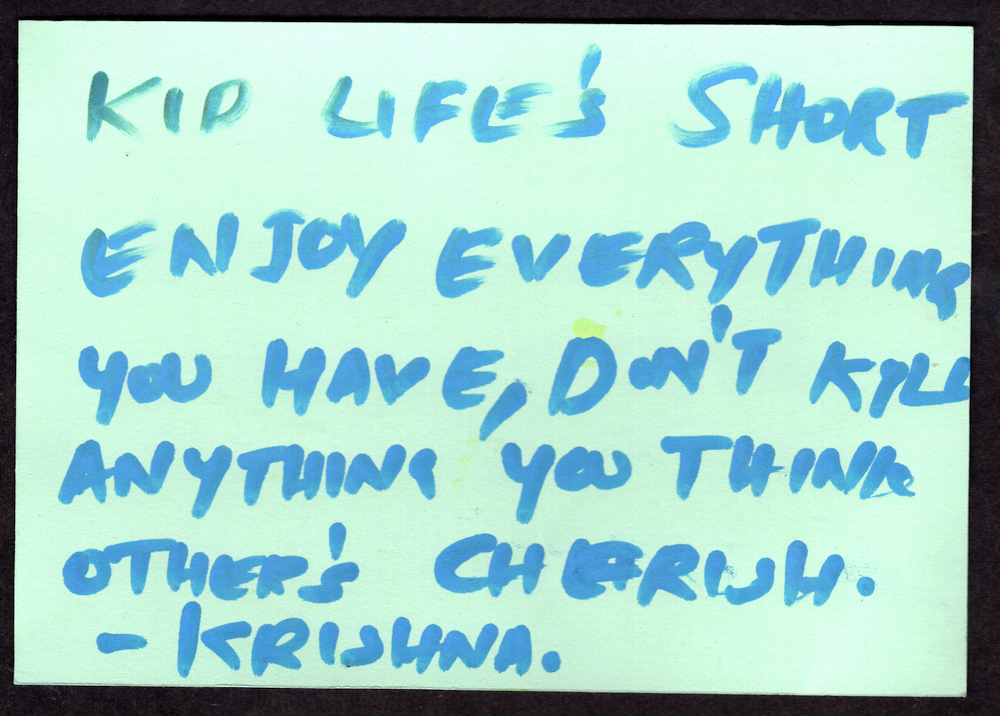 KID LIFE'S SHORT
ENJOY EVERYTHING
YOU HAVE, DON'T KYLL
ANYTHING YOU THINK
OTHER'S CHERISH.
- KRISHNA.